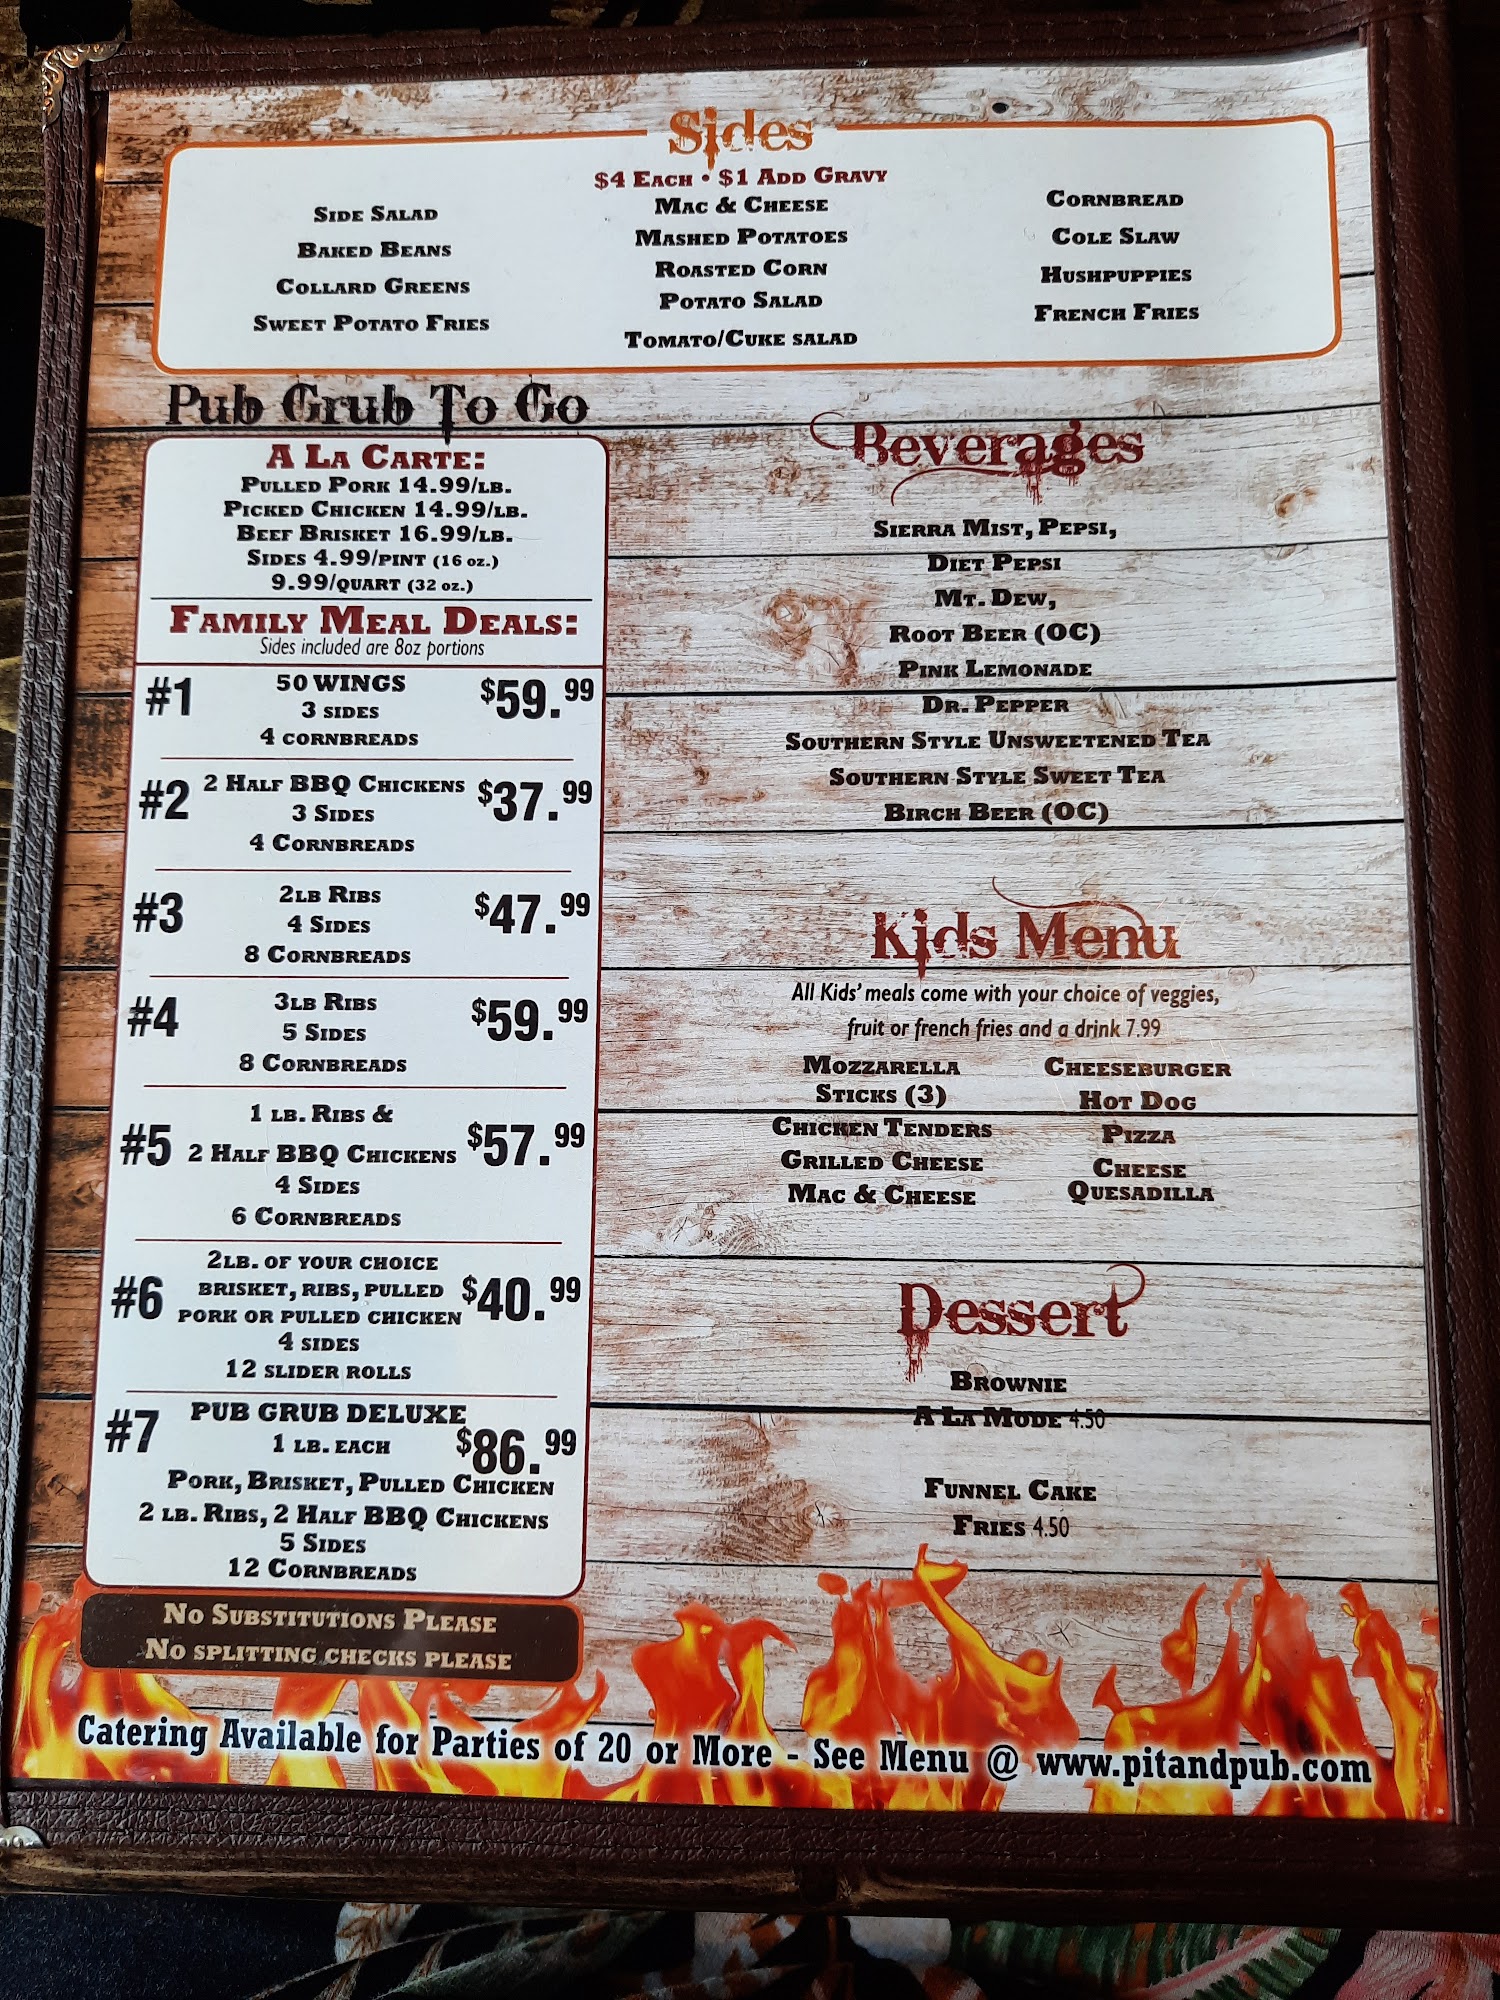 Sides
$4 Each • $1 Add Gravy
Side Salad
Baked Beans
Collard Greens
Sweet Potato Fries
Mac & Cheese
Mashed Potatoes
Roasted Corn
Potato Salad
Tomato/Cuke salad
Cornbread
Cole Slaw
Hushpuppies
French Fries
Pub Grub To Go
A La Carte:
Pulled Pork 14.99/lb.
Picked Chicken 14.99/lb.
Beef Brisket 16.99/lb.
Sides 4.99/pint (16 oz.)
9.99/quart (32 oz.)
Family Meal Deals:
Sides included are 8oz portions
#1 50 WINGS $59.99
3 sides
4 cornbreads
#2 2 Half BBQ Chickens $37.99
3 Sides
4 Cornbreads
#3 2lb Ribs $47.99
4 Sides
8 Cornbreads
#4 3lb Ribs $59.99
5 Sides
8 Cornbreads
#5 1 lb. Ribs & $57.99
2 Half BBQ Chickens
4 Sides
6 Cornbreads
#6 2lb. of your choice $40.99
brisket, ribs, pulled
pork or pulled chicken
4 sides
12 slider rolls
#7 PUB GRUB DELUXE $86.99
1 lb. each
Pork, Brisket, Pulled Chicken
2 lb. Ribs, 2 Half BBQ Chickens
5 Sides
12 Cornbreads
No Substitutions Please
No splitting checks please
Beverages
Sierra Mist, Pepsi,
Diet Pepsi
Mt. Dew,
Root Beer (OC)
Pink Lemonade
Dr. Pepper
Southern Style Unsweetened Tea
Southern Style Sweet Tea
Birch Beer (OC)
Kids Menu
All Kids' meals come with your choice of veggies,
fruit or french fries and a drink 7.99
Mozzarella
Sticks (3)
Chicken Tenders
Grilled Cheese
Mac & Cheese
Cheeseburger
Hot Dog
Pizza
Cheese
Quesadilla
Dessert
Brownie
A La Mode 4.50
Funnel Cake
Fries 4.50
Catering Available for Parties of 20 or More - See Menu @ www.pitandpub.com